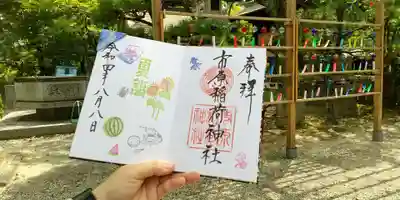 奉拝
市原稲荷神社
夏詣
令和四年八月八日